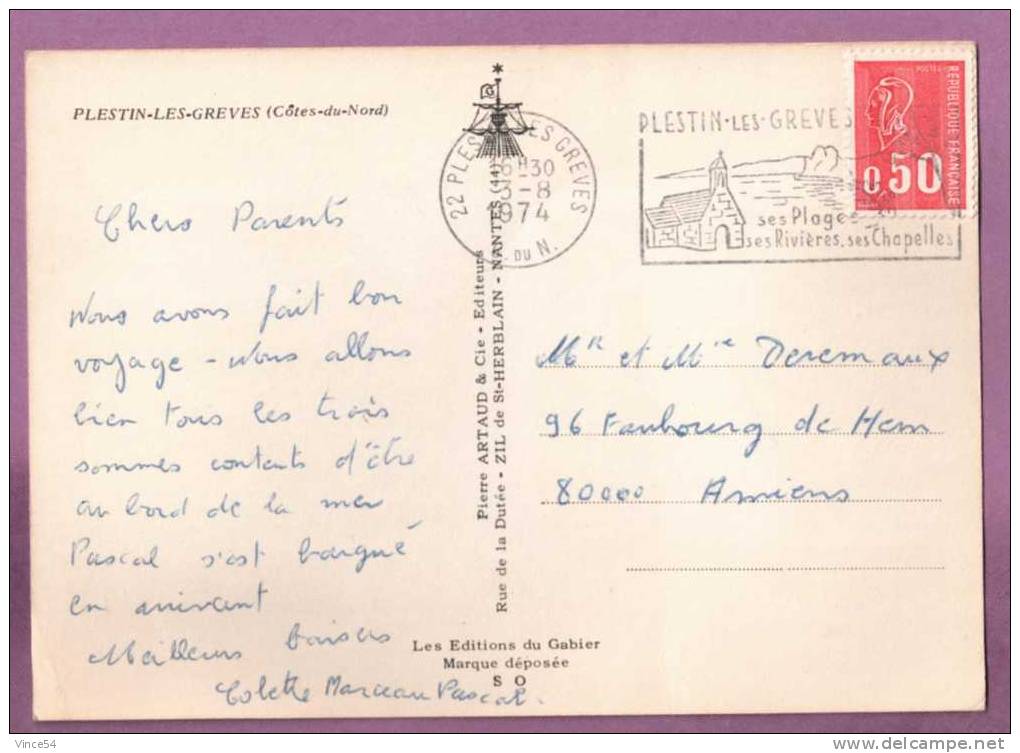 PLESTIN-LES-GREVES (Côtes-du-Nord)
Chers Parents
Nous avons fait bon
voyage - Nous allons
bien tous les trois
sommes contents d'être
au bord de la mer
Pascal s'est baigné
en arrivant
Meilleurs baisers
Colette Marceau Pascal.
Pierre ARTAUD & Cie - Editeurs
Rue de la Dutée - ZIL de St-HERBLAIN - NANTES (44)
Les Editions du Gabier
Marque déposée
S O
22 PLES ES GREVES
16H30
3-8
1974
C. DU N.
PLESTIN-LES-GREVES
ses Plages
ses Rivières, ses Chapelles
POSTES
REPUBLIQUE FRANÇAISE
0.50
Mr et Mme Deremaux
96 Faubourg de Hem
80000 Amiens
Vince54
www.delcampe.net